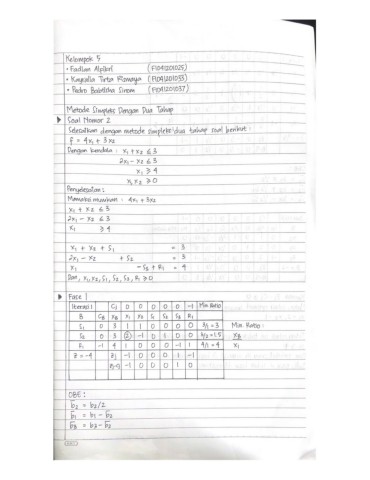 Kelompok 5
• Fadlan Alpikri (F1041201025)
• Kaysalla Tirta Rismaya (F1041201033)
• Pedro Babtisha Sinom (F1041201037)
Metode Simpleks Dengan Dua Tahap
Soal Nomor 2
Selesaikan dengan metode simpleks dua tahap soal berikut :
f = 4x1 + 3x2
Dengan kendala : x1 + x2 ≤ 3
2x1 - x2 ≤ 3
x1 ≥ 4
x1, x2 ≥ 0
Penyelesaian :
4x1 + 3x2
x1 + x2 ≤ 3
2x1 - x2 ≤ 3
x1 ≥ 4
x1 + x2 + S1 = 3
2x1 - x2 + S2 = 3
x1 - S3 + R1 = 4
Dan, x1, x2, S1, S2, S3, R1 ≥ 0
Fase 1
Iterasi 1 Cj 0 0 0 0 0 -1 Min Ratio
B CB XB x1 x2 S1 S2 S3 R1
S1 0 3 1 1 0 0 0 3/1 = 3 Min Ratio :
S2 0 3 2 -1 0 1 0 0 3/2 = 1.5 XB
R1 -1 4 1 0 0 0 -1 1 4/1 = 4 x1
Z = -4 Zj -1 0 0 0 1 -1
Zj-Cj -1 0 0 0 1 0
OBE :
b2 = b2/2
b1 = b1 - b2
b3 = b3 - b2